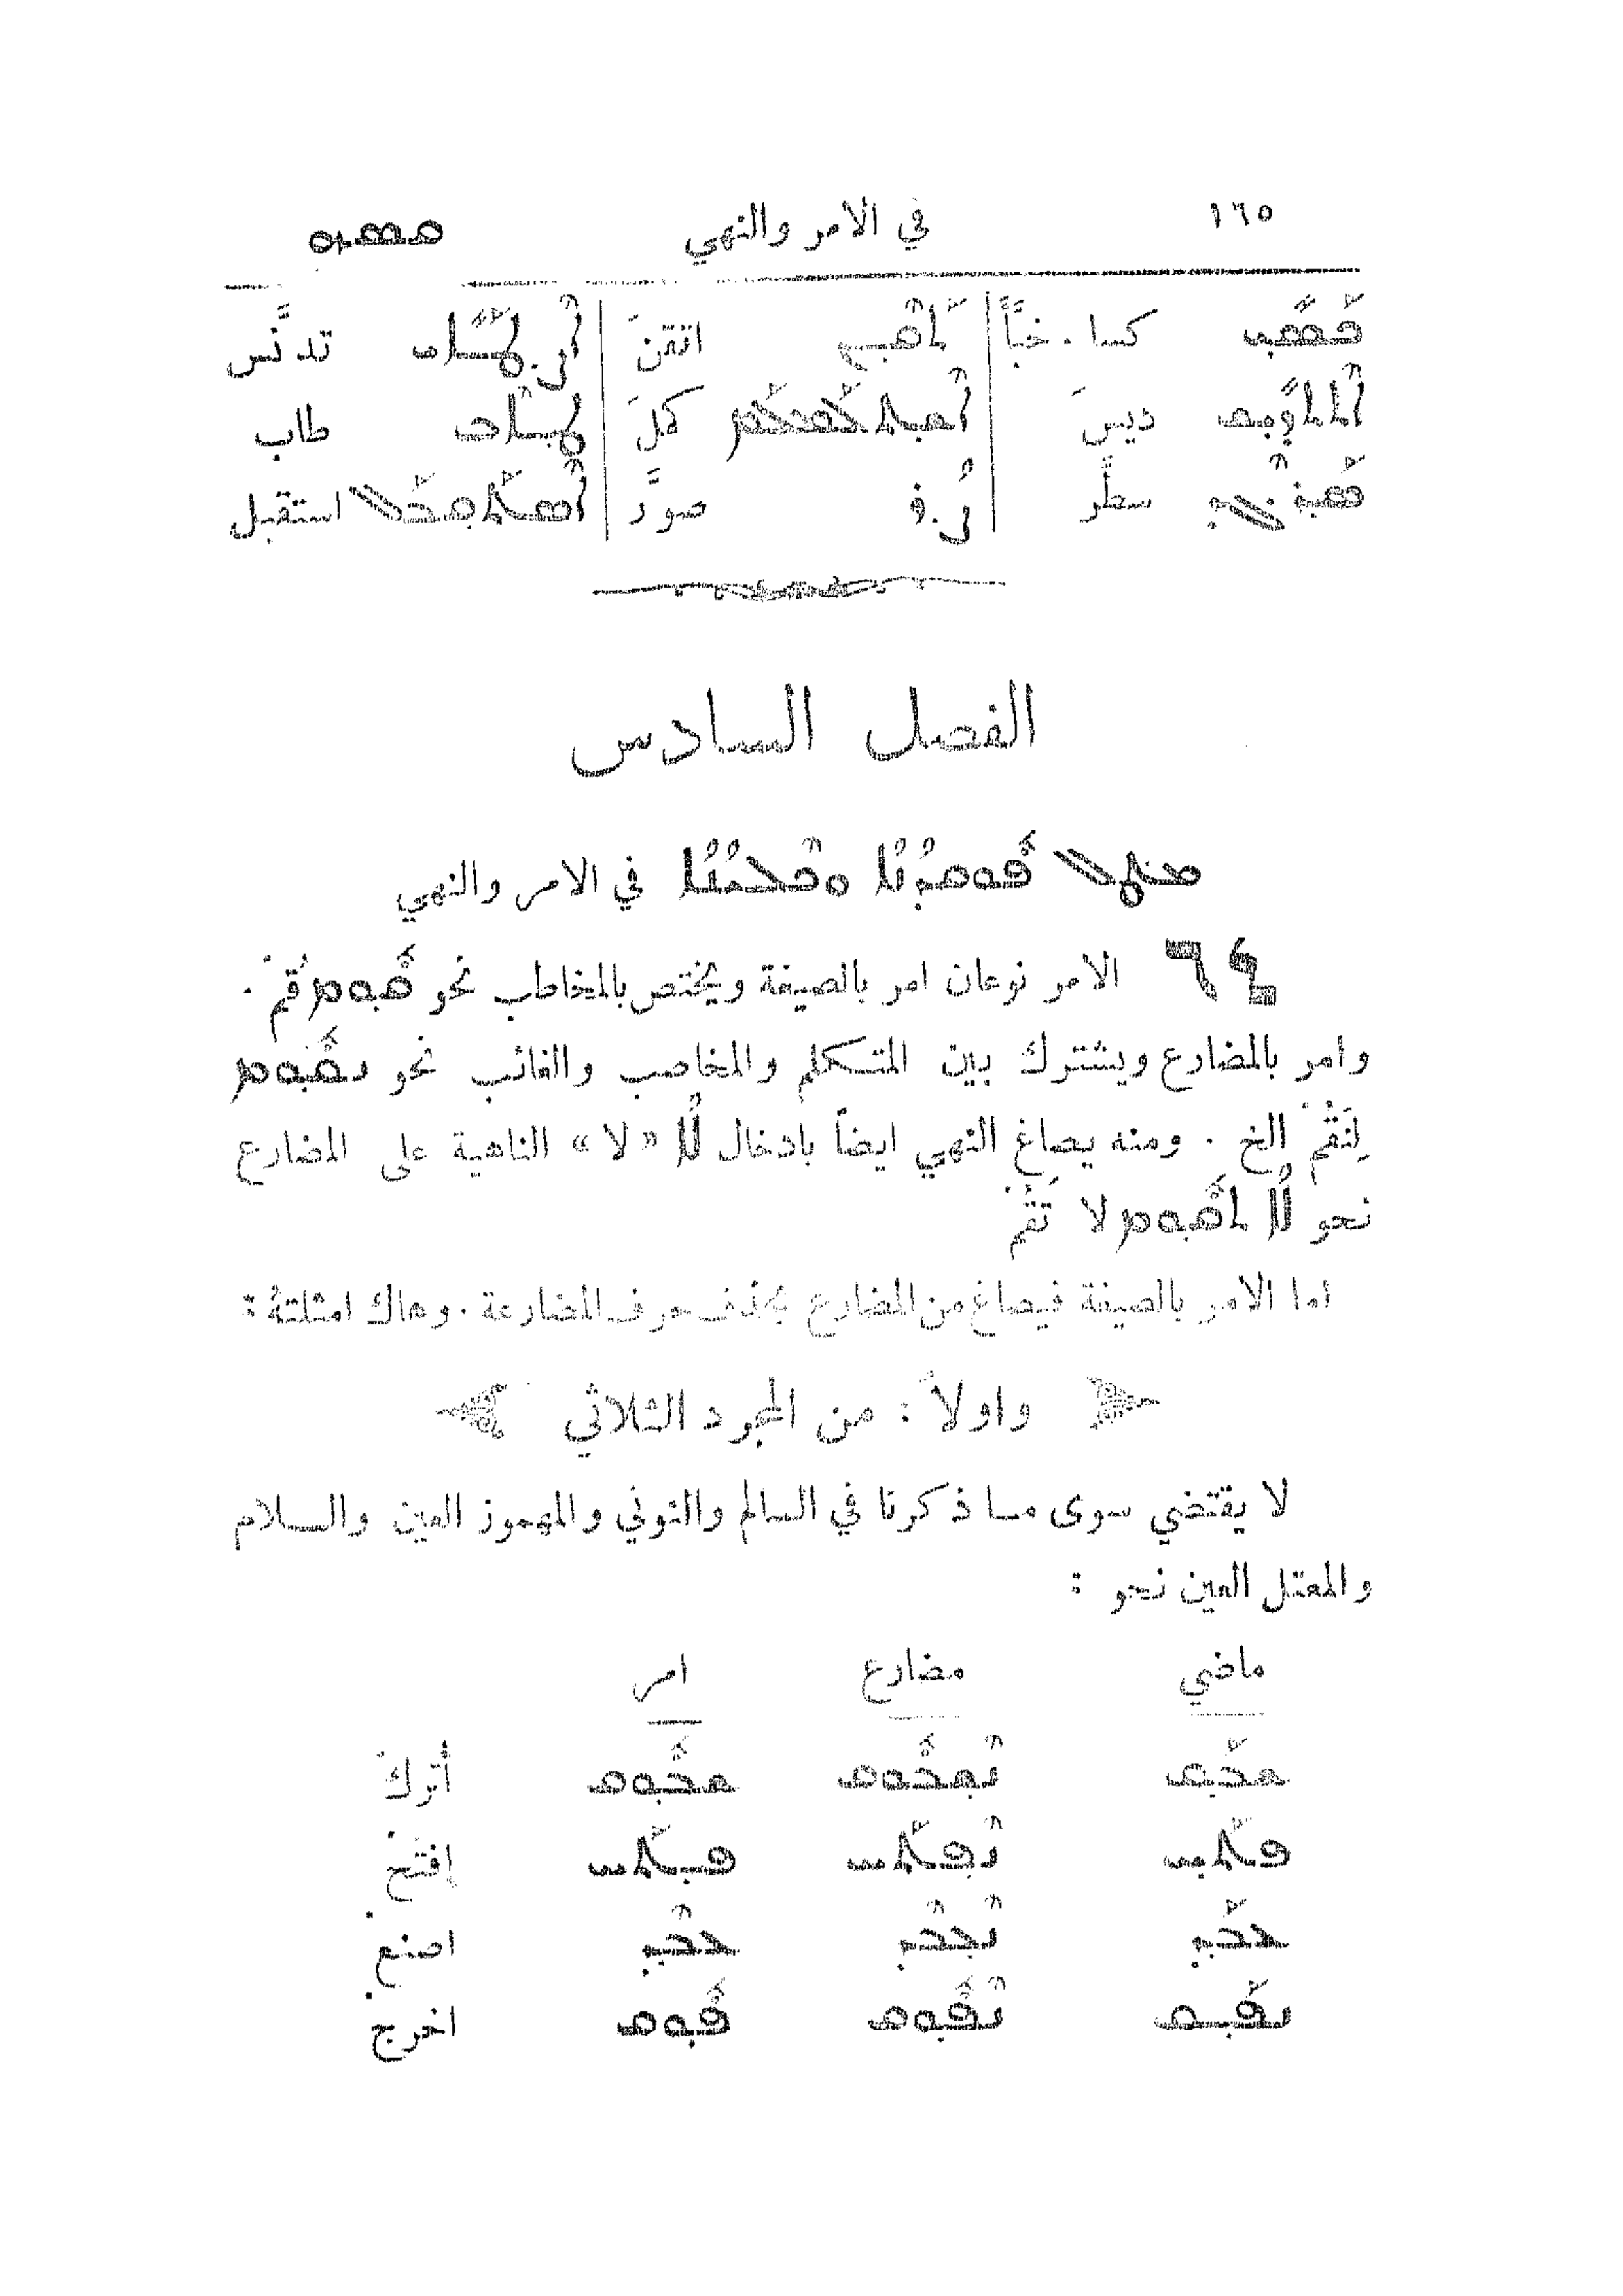 ١٦٥ في الامر والنهي ܩܣܗ
ܟܰܣܺܝ كسا . خبَّأ ܬܩܢ اتقنَ ܐܶܬܛܰܢܰܦ تدنَّس
ܐܶܬܬܕܺܝܫ ديسَ ܐܶܫܬܰܟܠܰܠ كملَ ܛܐܒ طاب
ܣܰܪܓܶܕ سطَّر ܨܳܪ صوَّر ܐܶܣܬܰܩܒܰܠ استقبل
الفصل السادس
ܡܛܠ ܦܽܘܩܕܳܢܳܐ ܘܟܶܠܝܳܢܳܐ في الامر والنهي
٦٤ الامر نوعان امر بالصيغة ويختص بالمخاطب نحو ܩܽܘܡ قُمْ .
وامر بالمضارع ويشترك بين المتكلم والمخاصب والغائب نحو ܢܩܽܘܡ
لِنَقُمْ الخ . ومنه يصاغ النهي ايضاً بادخال ܠܳܐ «لا» الناهية على المضارع
نحو ܠܳܐ ܬܩܽܘܡ لا تَقُمْ
اما الامر بالصيغة فيصاغ من المضارع بحذف حرف المضارعة . وهاك امثلتهُ :
واولاً : من المجرد الثلاثي
لا يقتضي سوى ما ذكرنا في السالم والنوني والمهموز العين والسلام
والمعتل العين نحو :
ماضي مضارع امر
ܫܒܰܩ ܢܶܫܒܽܘܩ ܫܒܽܘܩ أُتركْ
ܦܬܰܚ ܢܶܦܬܰܚ ܦܬܰܚ إفتَحْ
ܥܒܰܕ ܢܶܥܒܶܕ ܥܒܶܕ اصنع
ܢܦܰܩ ܢܶܦܽܘܩ ܦܽܘܩ اخرج